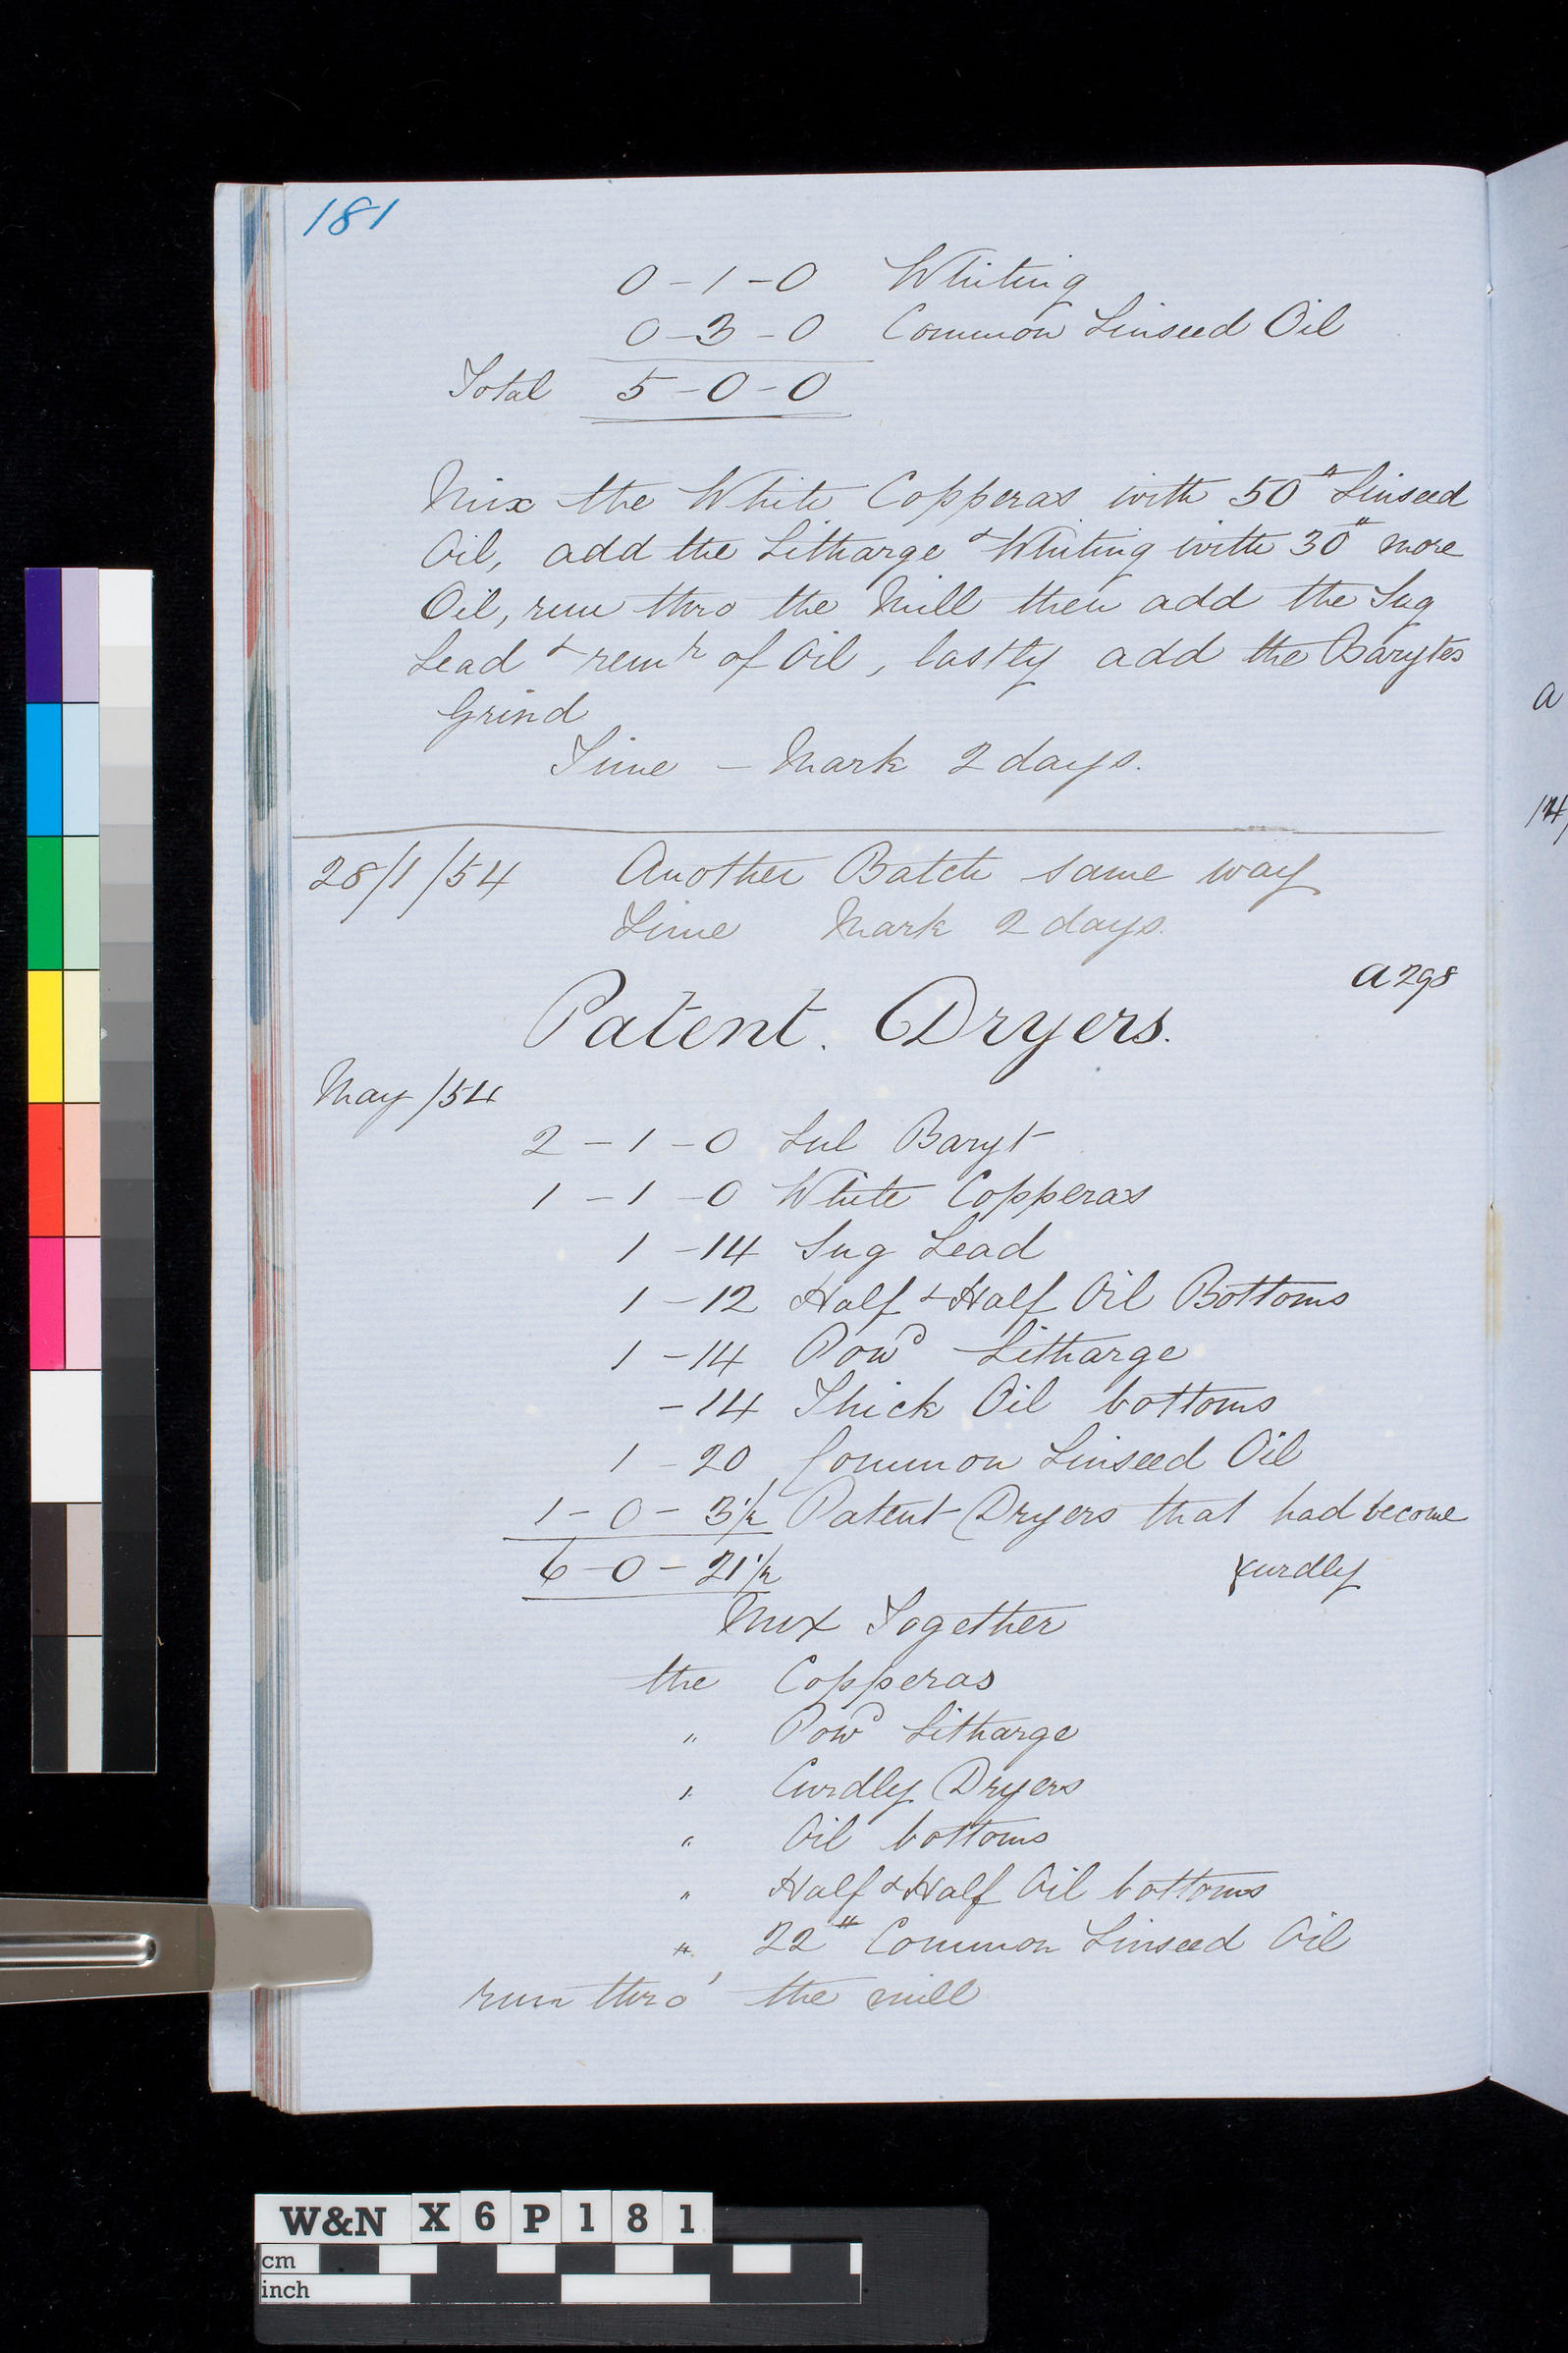 181
0 - 1 - 0 Whiting
0 - 3 - 0 Common Linseed Oil
Total 5 - 0 - 0
Mix the White Copperas with 50 " Linseed
Oil, add the Litharge & Whiting with 30 " more
Oil, run thro the Mill then add the Sug
Lead & remr of Oil, lastly add the Barytes
Grind
Time - Mark 2 days.
28/1/54 Another Batch same way
Time Mark 2 days.
a 298
Patent. Dryers.
May /54
2 - 1 - 0 Sul Baryt
1 - 1 - 0 White Copperas
1 - 14 Sug Lead
1 - 12 Half & Half Oil Bottoms
1 - 14 Powd Litharge
- 14 Thick Oil bottoms
1 - 20 Common Linseed Oil
1 - 0 - 3 1/2 Patent Dryers that had become
6 - 0 - 21 1/2 curdly
Mix Together
the Copperas
" Powd Litharge
" Curdly Dryers
" Oil bottoms
" Half & Half Oil bottoms
" 22 " Common Linseed Oil
run thro' the mill
a
14
W&N X6P181
cm
inch